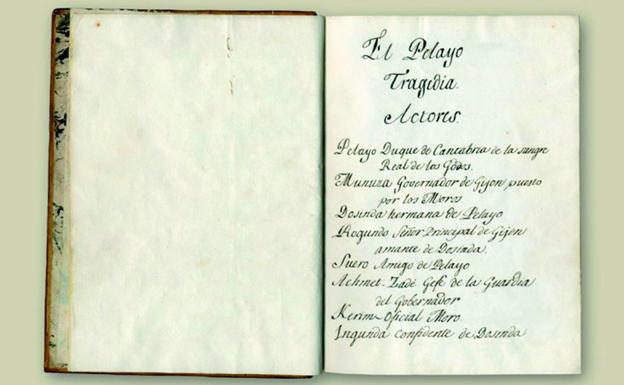 El Pelayo
Tragedia.
Actores.
Pelayo Duque de Cantabria de la sangre
Real de los Godos.
Munuza Governador de Gijon puesto
por los Moros
Dosinda hermana de Pelayo
Rogundo Señor Principal de Gijon
amante de Dosinda.
Suero Amigo de Pelayo
Achmet-Zadé Gefe de la Guardia
del Gobernador
Kerim Oficial Moro.
Ingunda Confidente de Dosinda